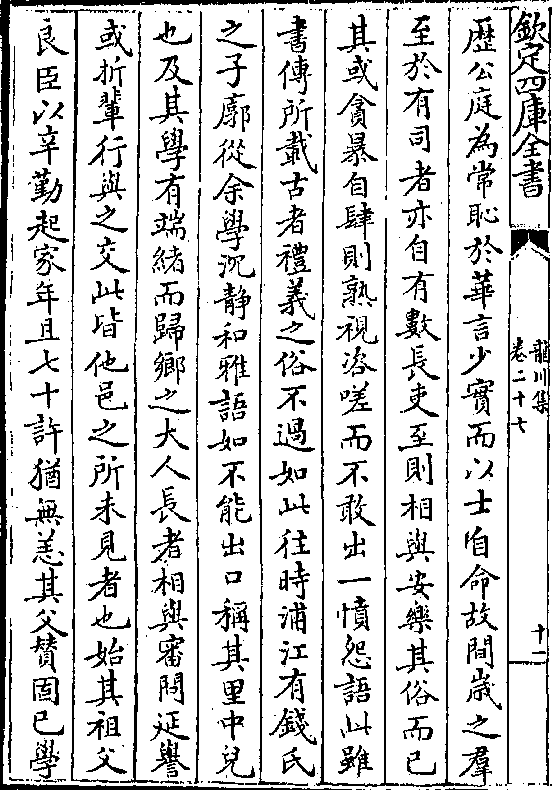 欽定四庫全書
龍川集
卷二十七
十一
歴公庭為常恥於華言少實而以士自命故間歲之羣
至於有司者亦自有數長吏至則相與安樂其俗而已
其或貪暴自肆則熟視咨嗟而不敢出一憤怨語此雖
書傳所載古者禮義之俗不過如此往時浦江有錢氏
之子廓從余學沉静和雅語如不能出口稱其里中兒
也及其學有端緒而歸鄉之大人長者相與審問延譽
或折輩行與之交此皆他邑之所未見者也始其祖父
良臣以辛勤起家年且七十許猶無恙其父贊固已學